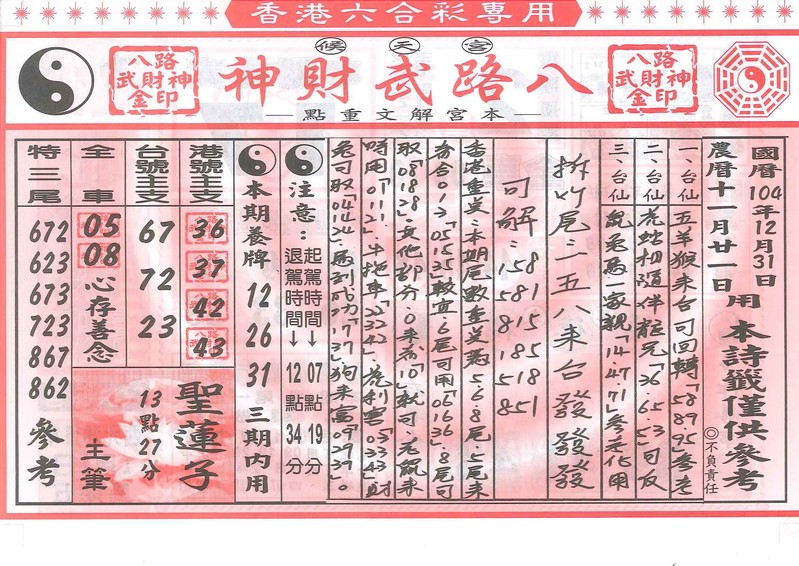 香港六合彩專用
宮天候
八路武財神
八路武財神金印
八路武財神金印
本宮解文重點
國曆104年12月31日
農曆十一月廿一日用
本詩籤僅供參考
◎不負責任
一、台仙 五羊猴來台可回轉「58 89 95」參考
二、台仙 虎蛇相隨伴龍兄「36.65.53」可反
三、台仙 鼠兔馬一家親「14.47.71」參考化用
拆竹尾二五八來台發發發
可解:158 581 815 185 518 851
香港重點:本期尾數重點為5.6.8尾,5尾來
合013「051525」較宜,6尾可用「061636」,8尾可
取「081828」,文化部分,0來為「10」就可,老鼠來
時用「0121」,牛拖車「223242」,兔利害「033343」財
兔可取「041424」,馬到成功「1737」,狗來富「092939」。
注意:
起駕時間→07點19分
退駕時間→12點34分
本期養牌 12 26 31 三期內用
港號主支
36
37
42
43
台號主支
67
72
23
聖蓮子
13點27分
主筆
全車
05
08
心存善念
特三尾
672
623
673
723
867
862
參考